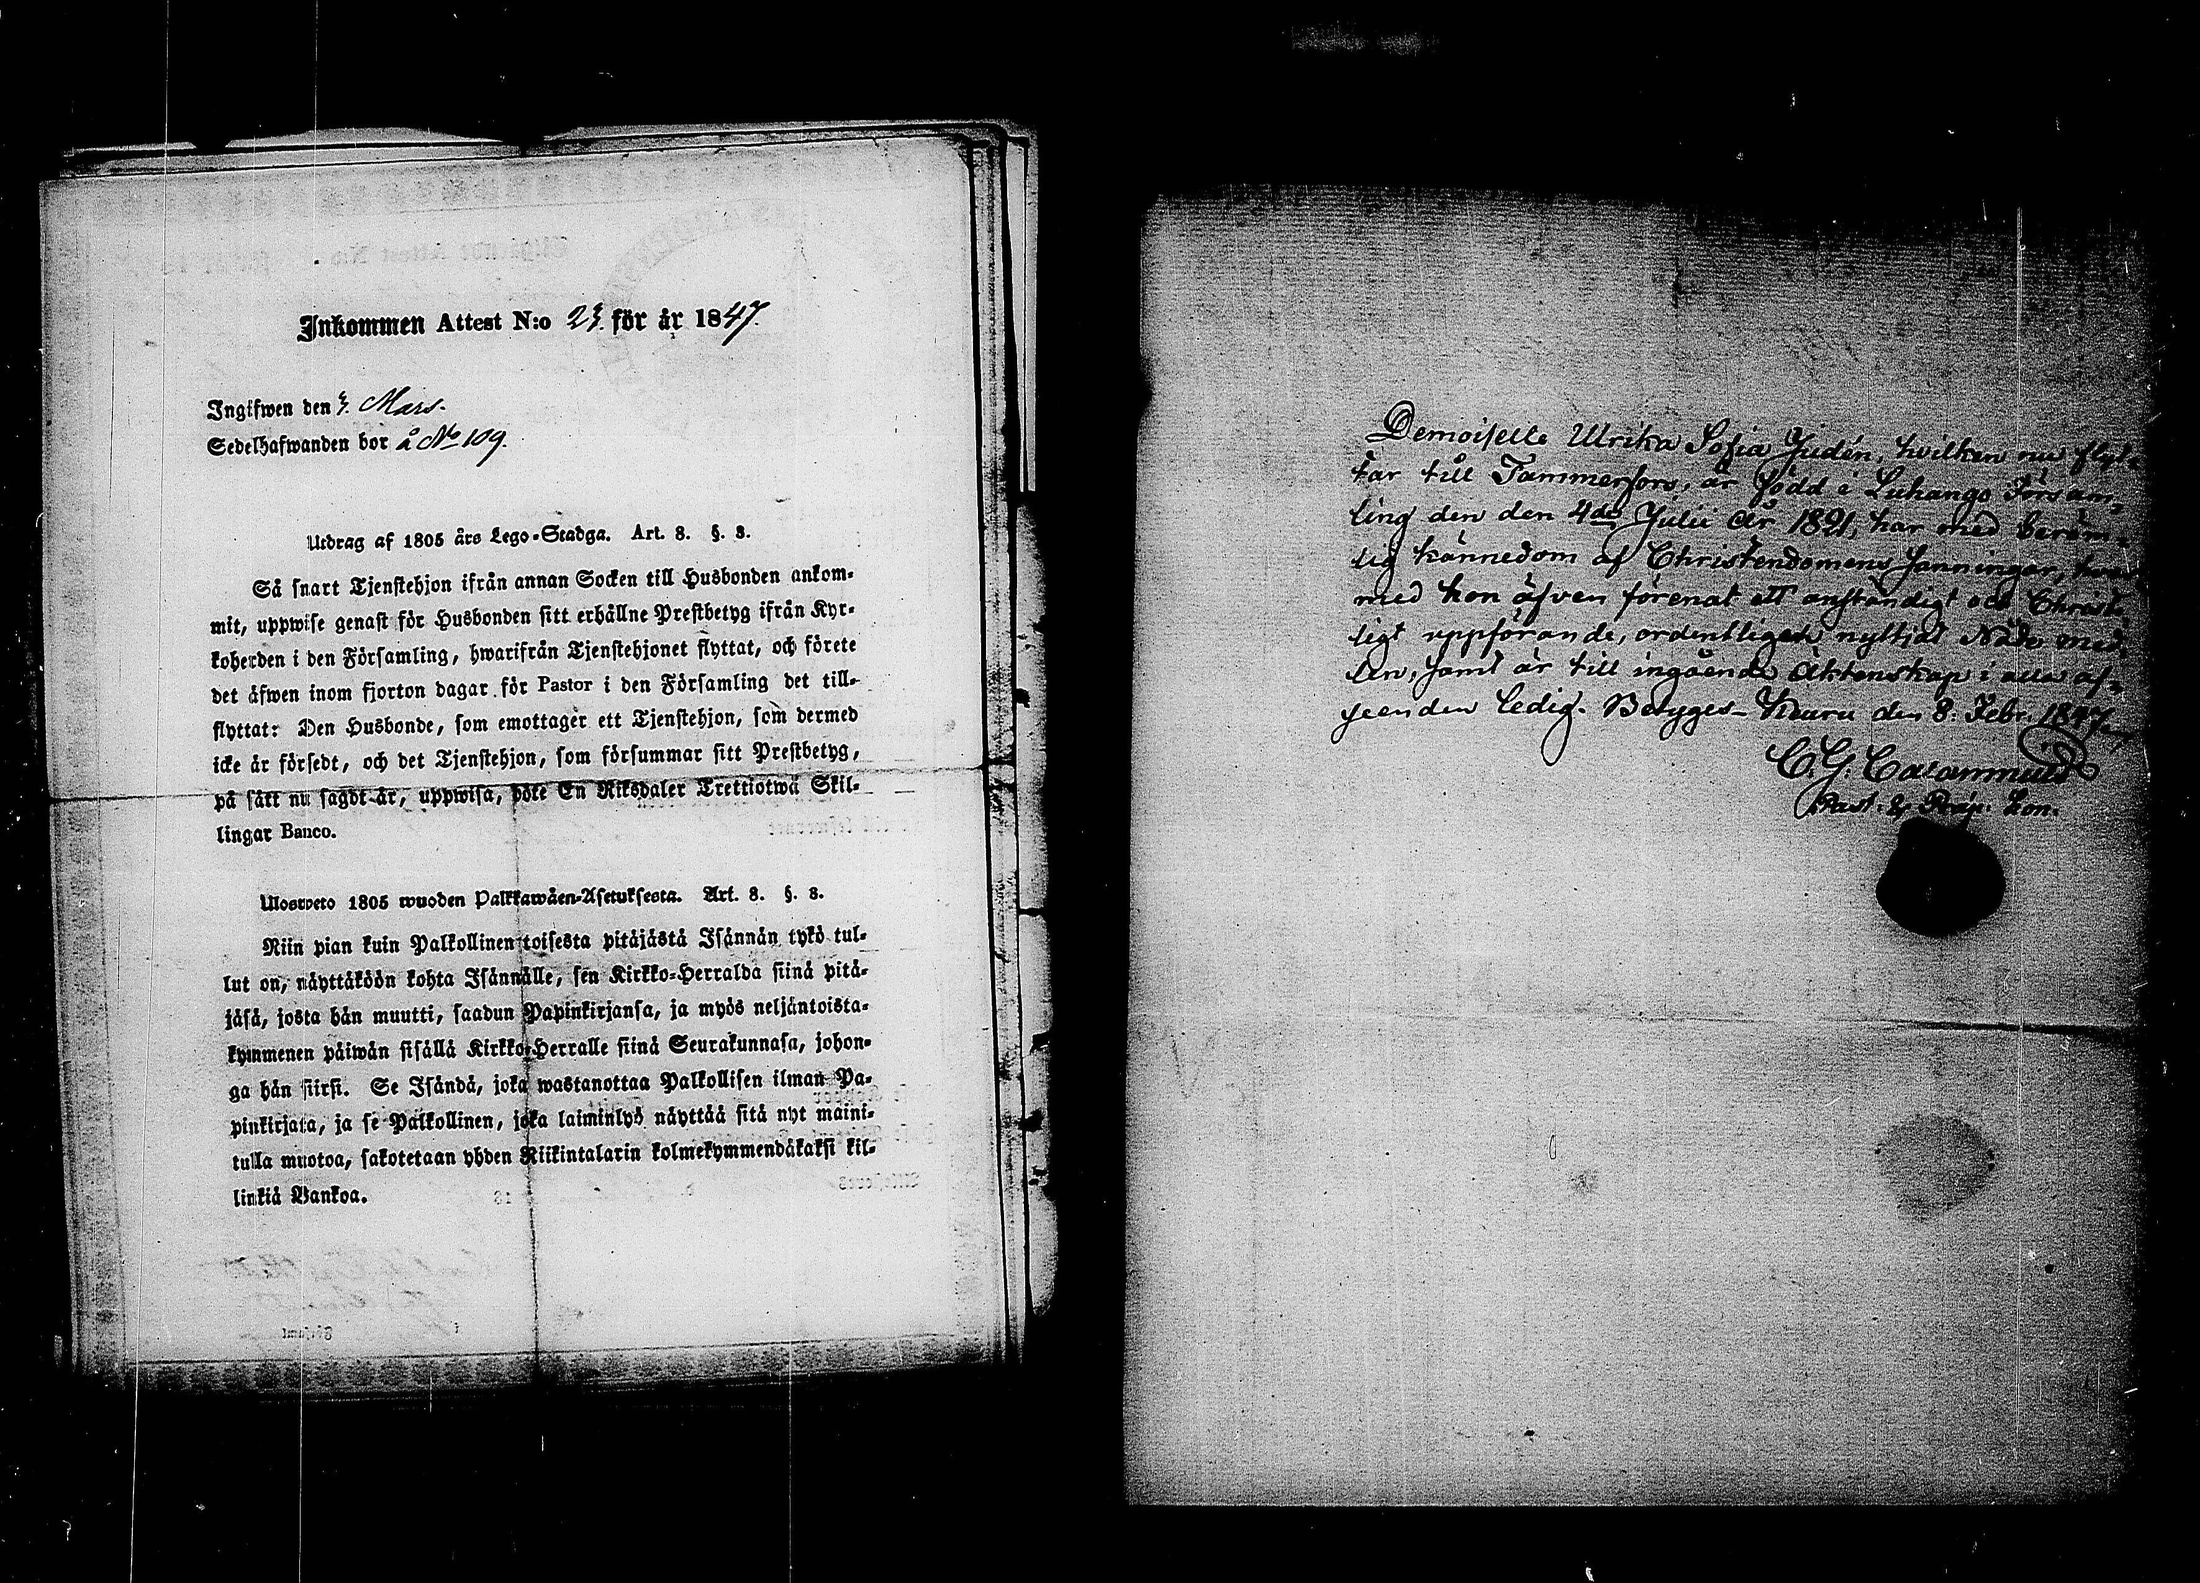 Inkommen Attest N:o 23. för år 1847.
Ingifwen den 3. Mars.
Sedelhafwanden bor å No 109.
Utdrag af 1805 års Lego-Stadga. Art. 8. §. 8.
Så snart Tjenstehjon ifrån annan Socken till Husbonden ankom-
mit, uppwise genast för Husbonden sitt erhållne Prestbetyg ifrån Kyr-
koherden i den Församling, hwarifrån Tjenstehjonet flyttat, och förete
det äfwen inom fjorton dagar för Pastor i den Församling det till-
flyttat: Den Husbonde, som emottager ett Tjenstehjon, som dermed
icke är försedt, och det Tjenstehjon, som försummar sitt Prestbetyg,
på sätt nu sagdt är, uppwisa, böte En Riksdaler Trettiotwå Skil-
lingar Banco.
Ulosweto 1805 wuoden Palkkawäen-Asetuksesta. Art. 8. §. 8.
Niin pian kuin Palkollinen toisesta pitäjästä Isännän tykö tul-
lut on, näyttäköön kohta Isännälle, sen Kirkko-Herralda siinä pitä-
jäsä, josta hän muutti, saadun Papinkirjansa, ja myös neljäntoista-
kymmenen päiwän sisällä Kirkko-Herralle siinä Seurakunnasa, johon-
ga hän siirsi. Se Isändä, joka wastanottaa Palkollisen ilman Pa-
pinkirjata, ja se Palkollinen, joka laiminlyö näyttää sitä nyt maini-
tulla muotoa, sakotetaan yhden Riikintalarin kolmekymmendäkaksi kil-
linkiä Bankoa.
Demoiselle Ulrika Sofia Judén, hvilken nu flyt-
tar till Tammerfors, är född i Luhango Försam-
ling den den 4de Julii År 1821, har med beröm-
lig kännedom af Christendomens Sanningar, hvar-
med hon äfven förenat ett anständigt och Christ-
ligt uppförande, ordentligen nyttjat Nåde med-
len, samt är till ingående Äktenskap i alla af-
seenden ledig. Betyges Kuru den 8. Febr. 1847
C. G.
Past. & Præp. Hon.